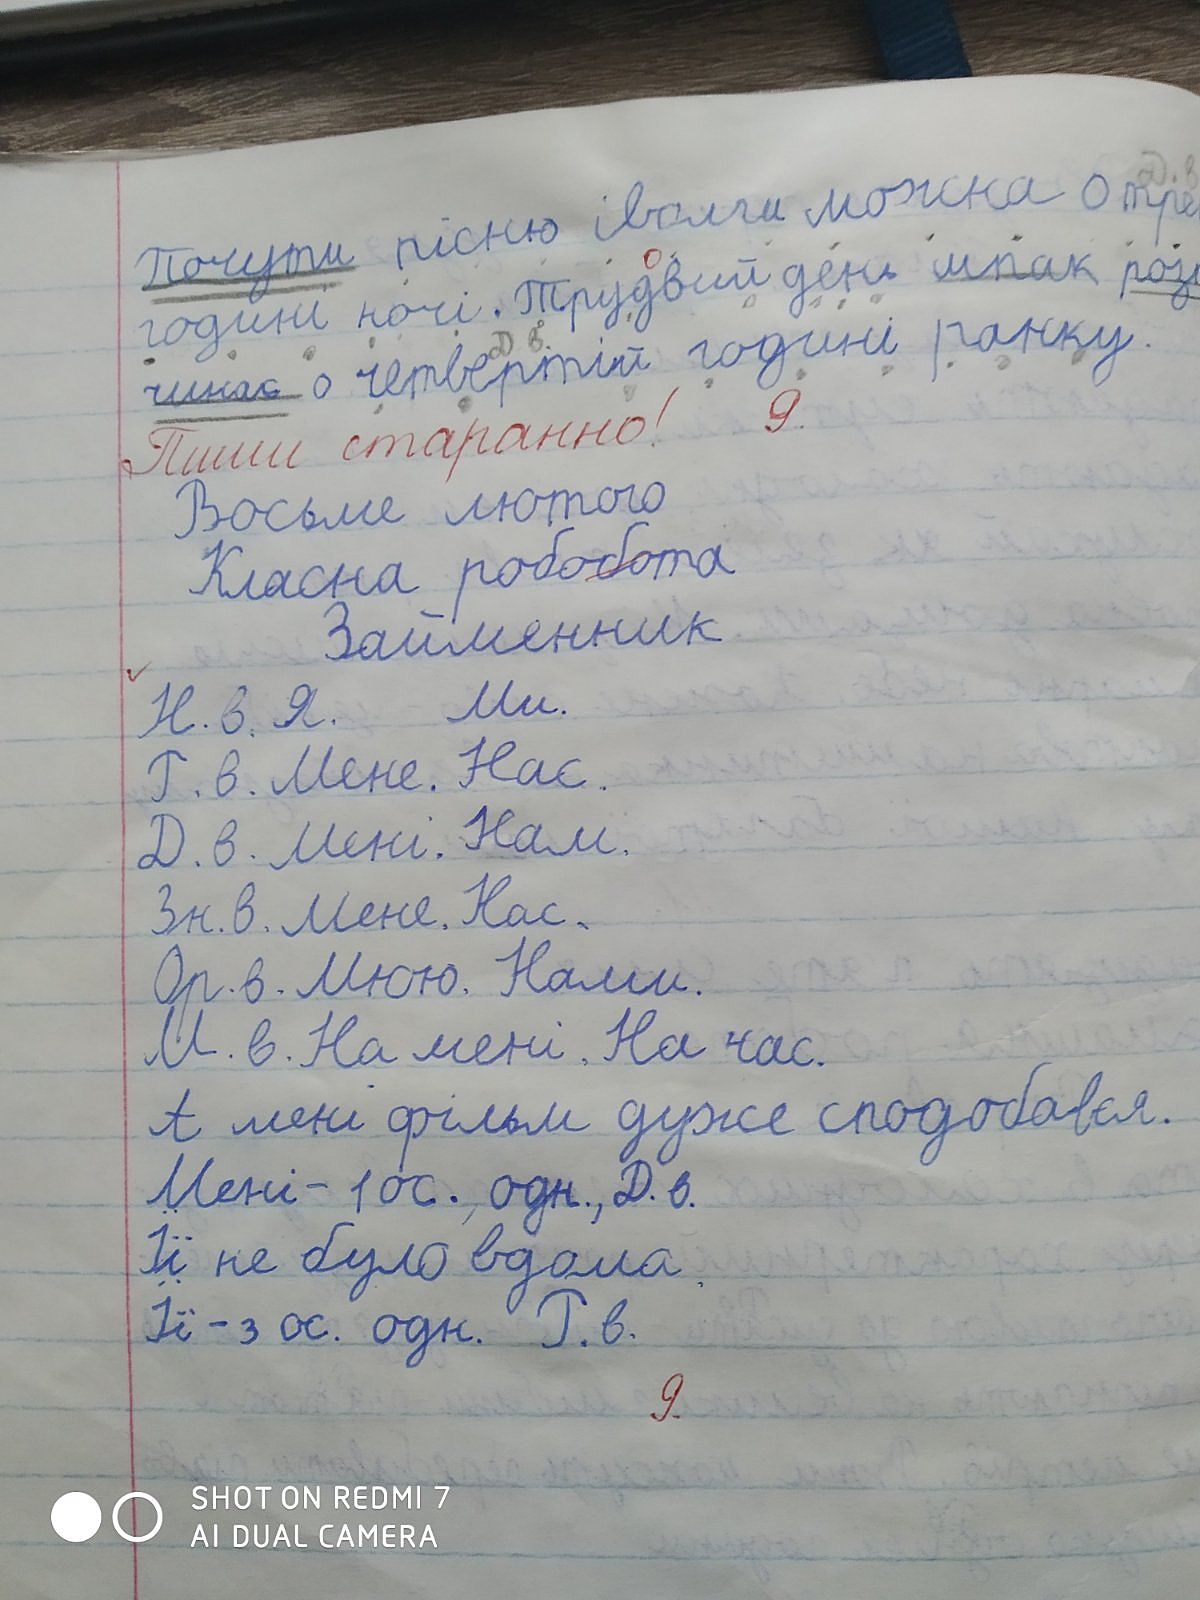 Почути пісню іволги можна о тре
годині ночі. Трудвий день шпак розп
о
чинає о четвертій годині ранку.
Д. в.
Пиши старанно! 9.
Восьме лютого
Класна робобота
Займенник
Н. в. Я. Ми.
Г. в. Мене. Нас.
Д. в. Мені. Нам.
Зн. в. Мене. Нас.
Ор. в. Мюю. Нами.
М. в. На мені. На час.
А мені фільм дуже сподобався.
Мені - 1 ос., одн., Д. в.
Її не було вдома.
Її - 3 ос. одн. Г. в.
9.
SHOT ON REDMI 7
AI DUAL CAMERA